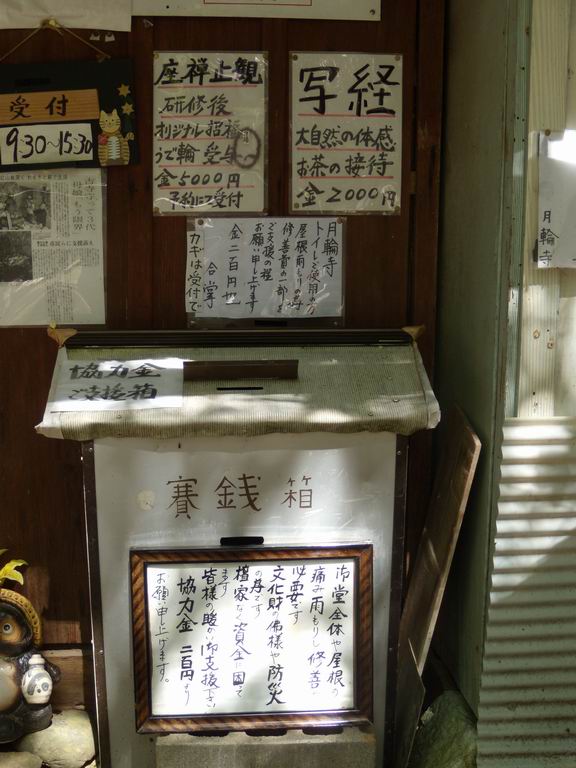 受付
9:30〜15:30
座禅止観
研修後
オリジナル招福
うで輪 受与
金5000円
予約にて受付
写経
大自然の体感
お茶の接待
金2000円
月輪寺
トイレご使用の方
屋根雨もりの為
修善費の一部を
ご支援の程
お願い申し上げます
金二百円也
合掌
カギは受付で
月輪寺
協力金
ご支援箱
賽銭箱
御堂全体や屋根の
痛み雨もりし修善が
必要です
文化財の佛様や防災
の為です
檀家なく資金に困って
ます
皆様の暖かい御支援下さい
協力金 二百円より
お願い申し上げます。